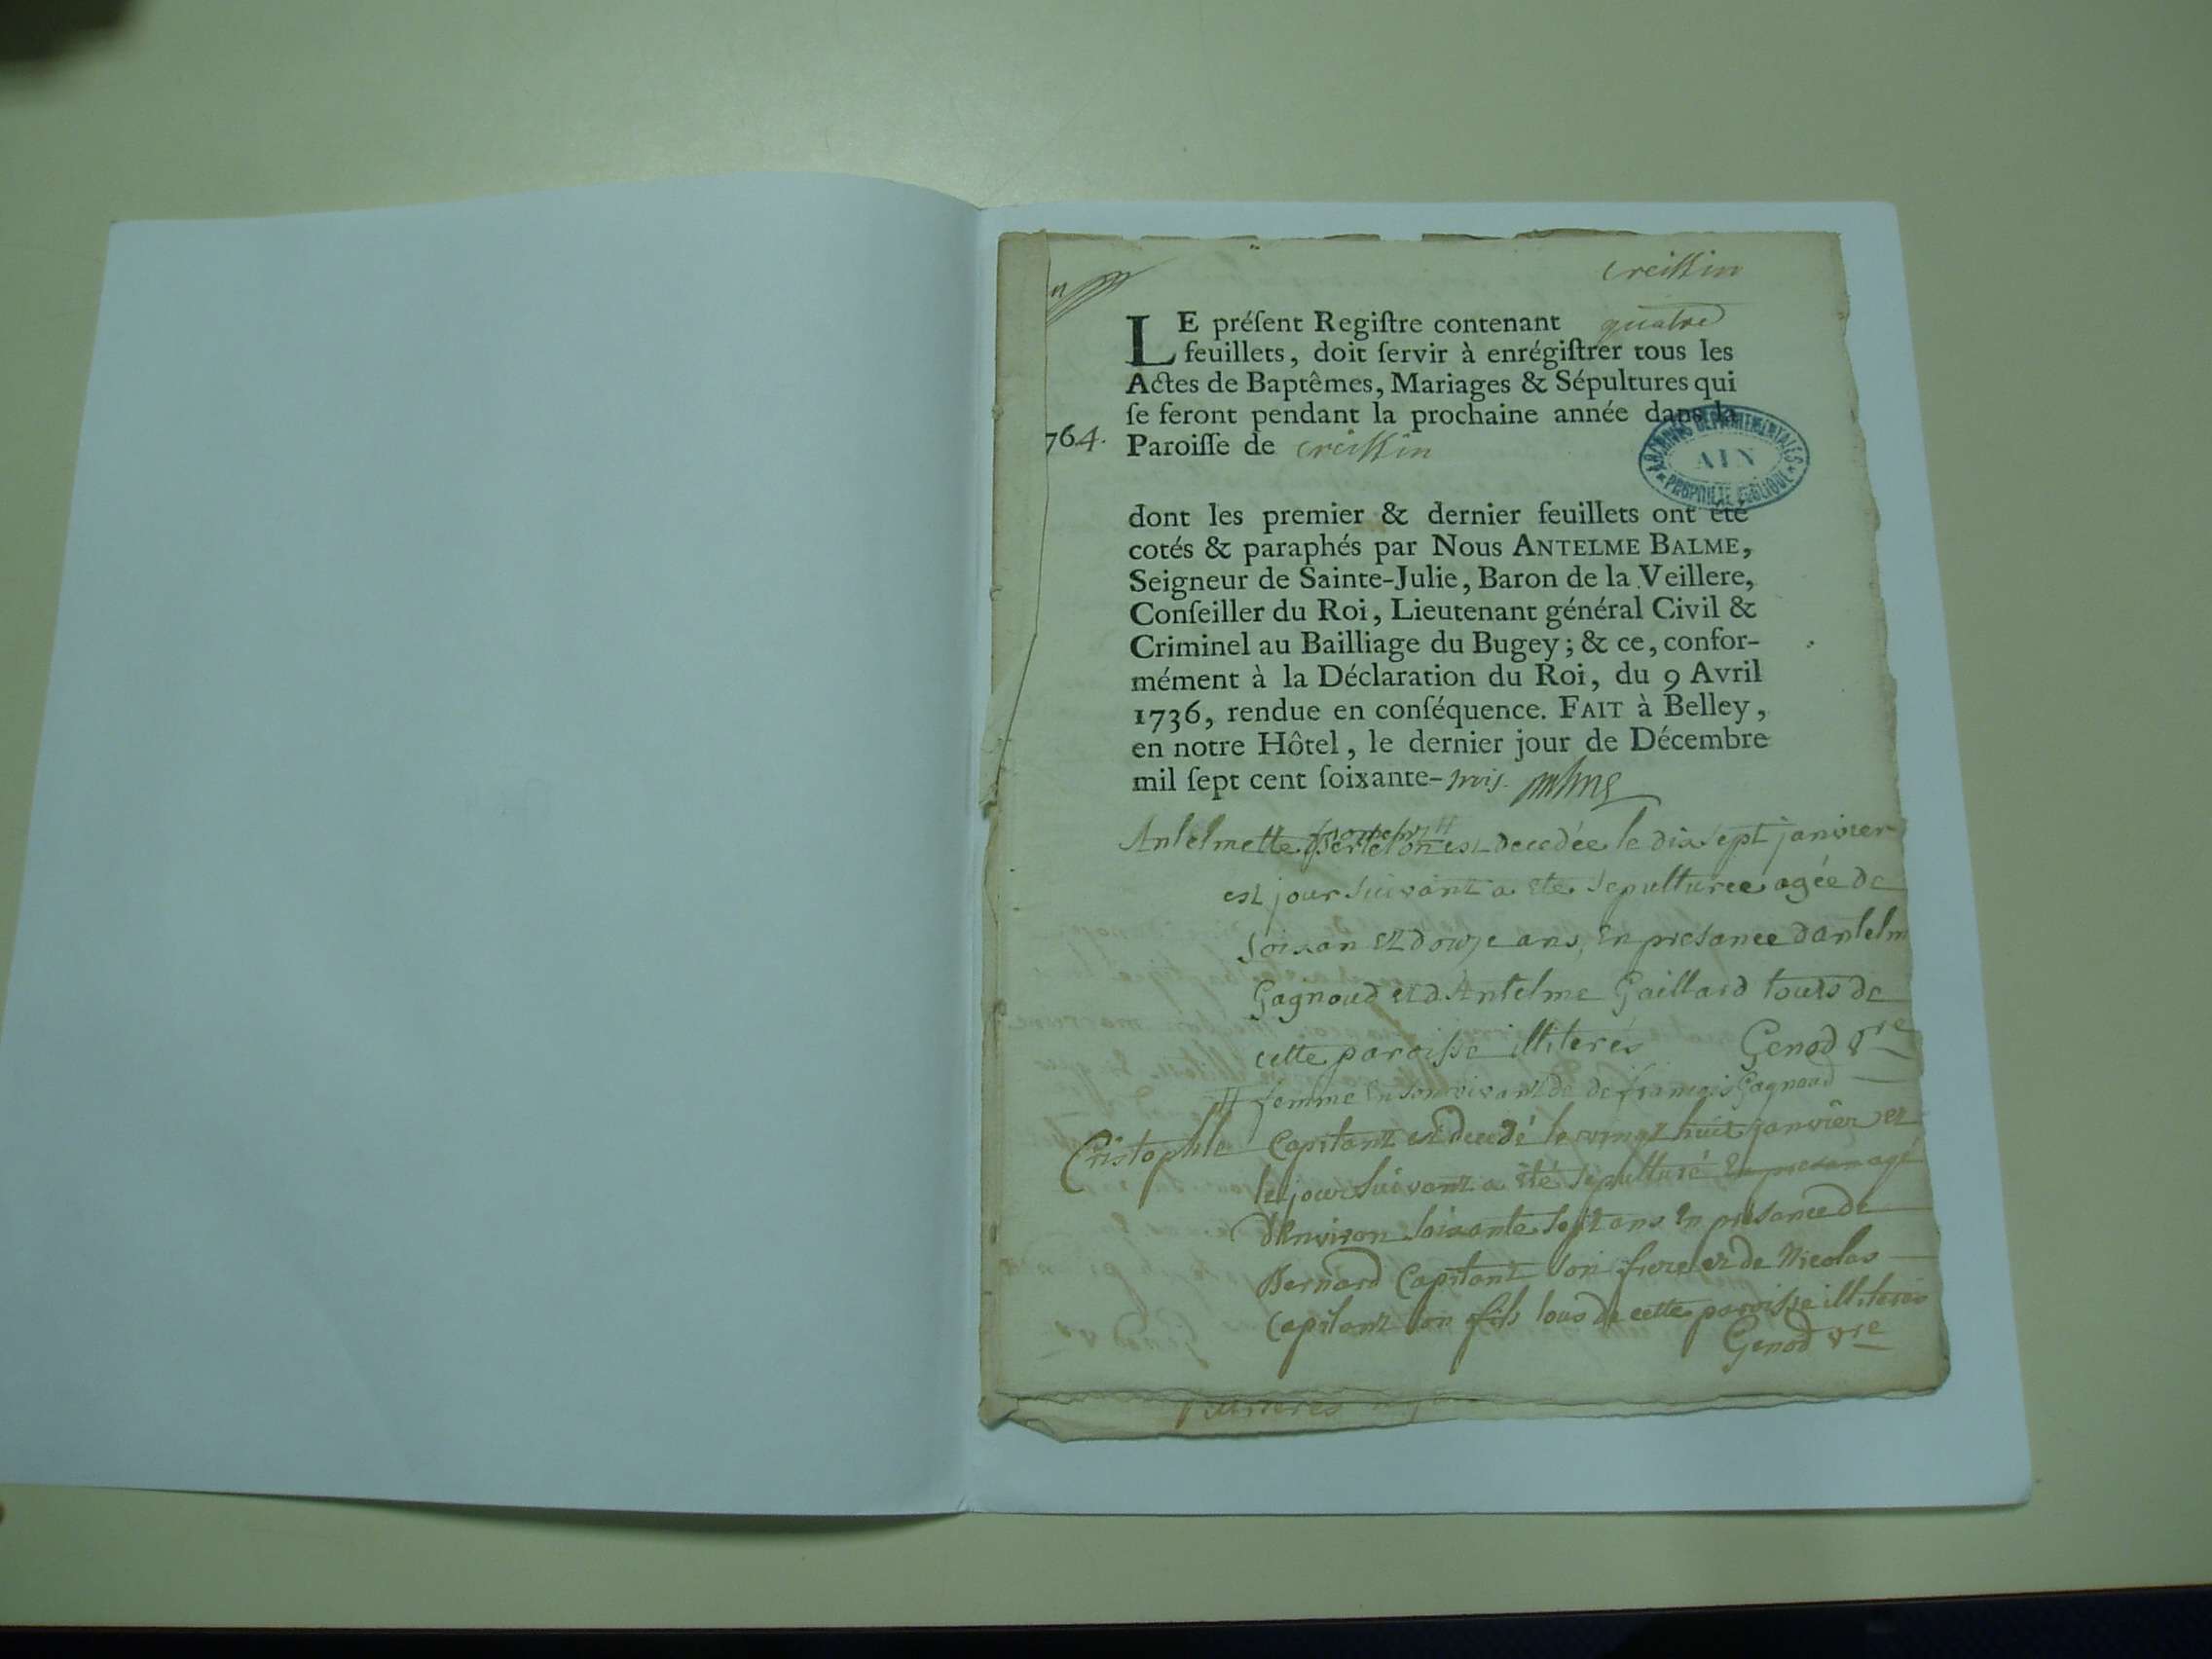 Creissin
LE préſent Regiſtre contenant quatre
feuillets, doit ſervir à enrégiſtrer tous les
Actes de Baptêmes, Mariages & Sépultures qui
ſe feront pendant la prochaine année dans la
764. Paroiſſe de Creissin
ARCHIVES DEPARTEMENTALES
AIN
PROPRIETE PUBLIQUE
dont les premier & dernier feuillets ont été
cotés & paraphés par Nous ANTELME BALME,
Seigneur de Sainte-Julie, Baron de la Veillere,
Conſeiller du Roi, Lieutenant général Civil &
Criminel au Bailliage du Bugey; & ce, confor-
mément à la Déclaration du Roi, du 9 Avril
1736, rendue en conſéquence. FAIT à Belley,
en notre Hôtel, le dernier jour de Décembre
mil ſept cent ſoixante-trois. Balme
Antelmette est decedée le dix sept janvier
est jour suivant a ete sepulturee agée de
soixan et douze ans, en presance dantelm
Gagnoud et dAntelme Gaillard touts de
cette paroisse illiterés Genod vre
# femme en son vivant de de francois Gagnoud
Cristophle Capitant est decedé le vingt huit janvier et
le jour suivant a été sépulturé agé
dEnviron soixante sept ans en présance de
Bernard Capitant son frere et de Nicolas
Capitant son fils tous de cette paroisse illiterés
Genod vre